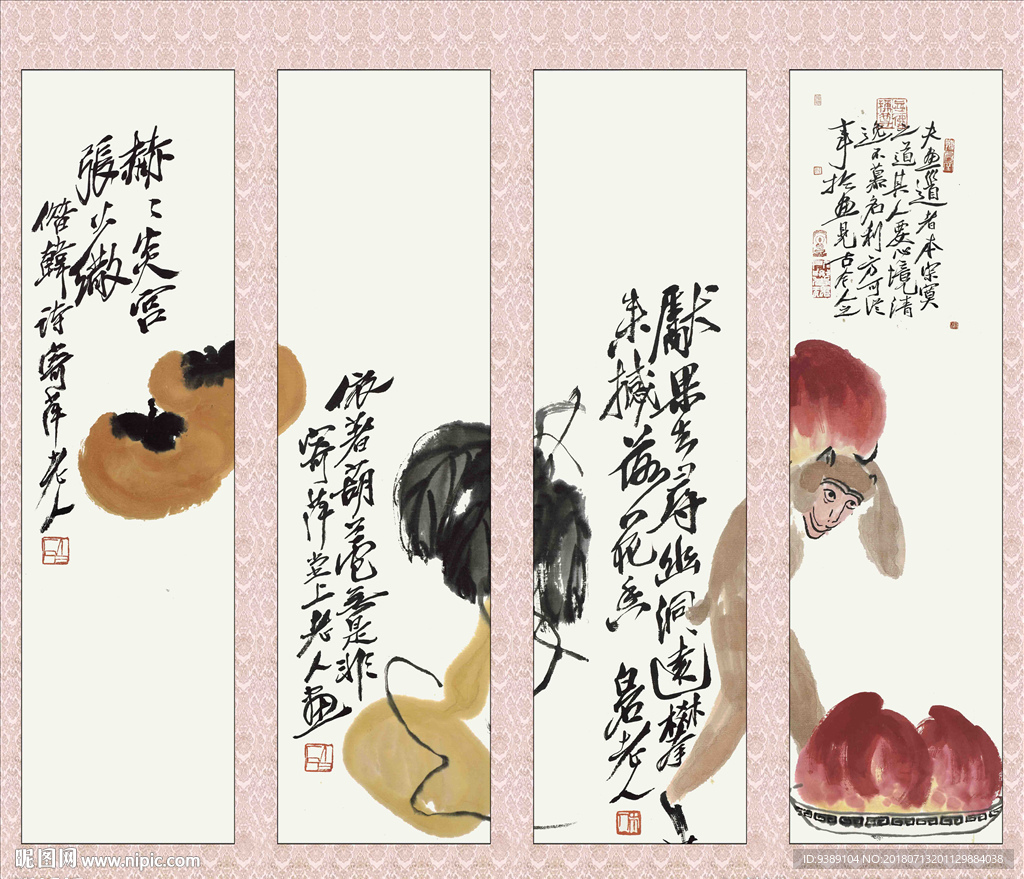 赫〻炎官
張火繖
借韓詩寄萍老人
依着葫蘆無是非
寄萍堂上老人畫
獻果去尋幽洞遠攀
来撼落花香
白石老人
夫畫道者本寂寞
之道其人要心境清
逸不慕名利方可從
事於畫見古今人之
昵图网 www.nipic.com
ID:9389104 NO:20180713201129884038